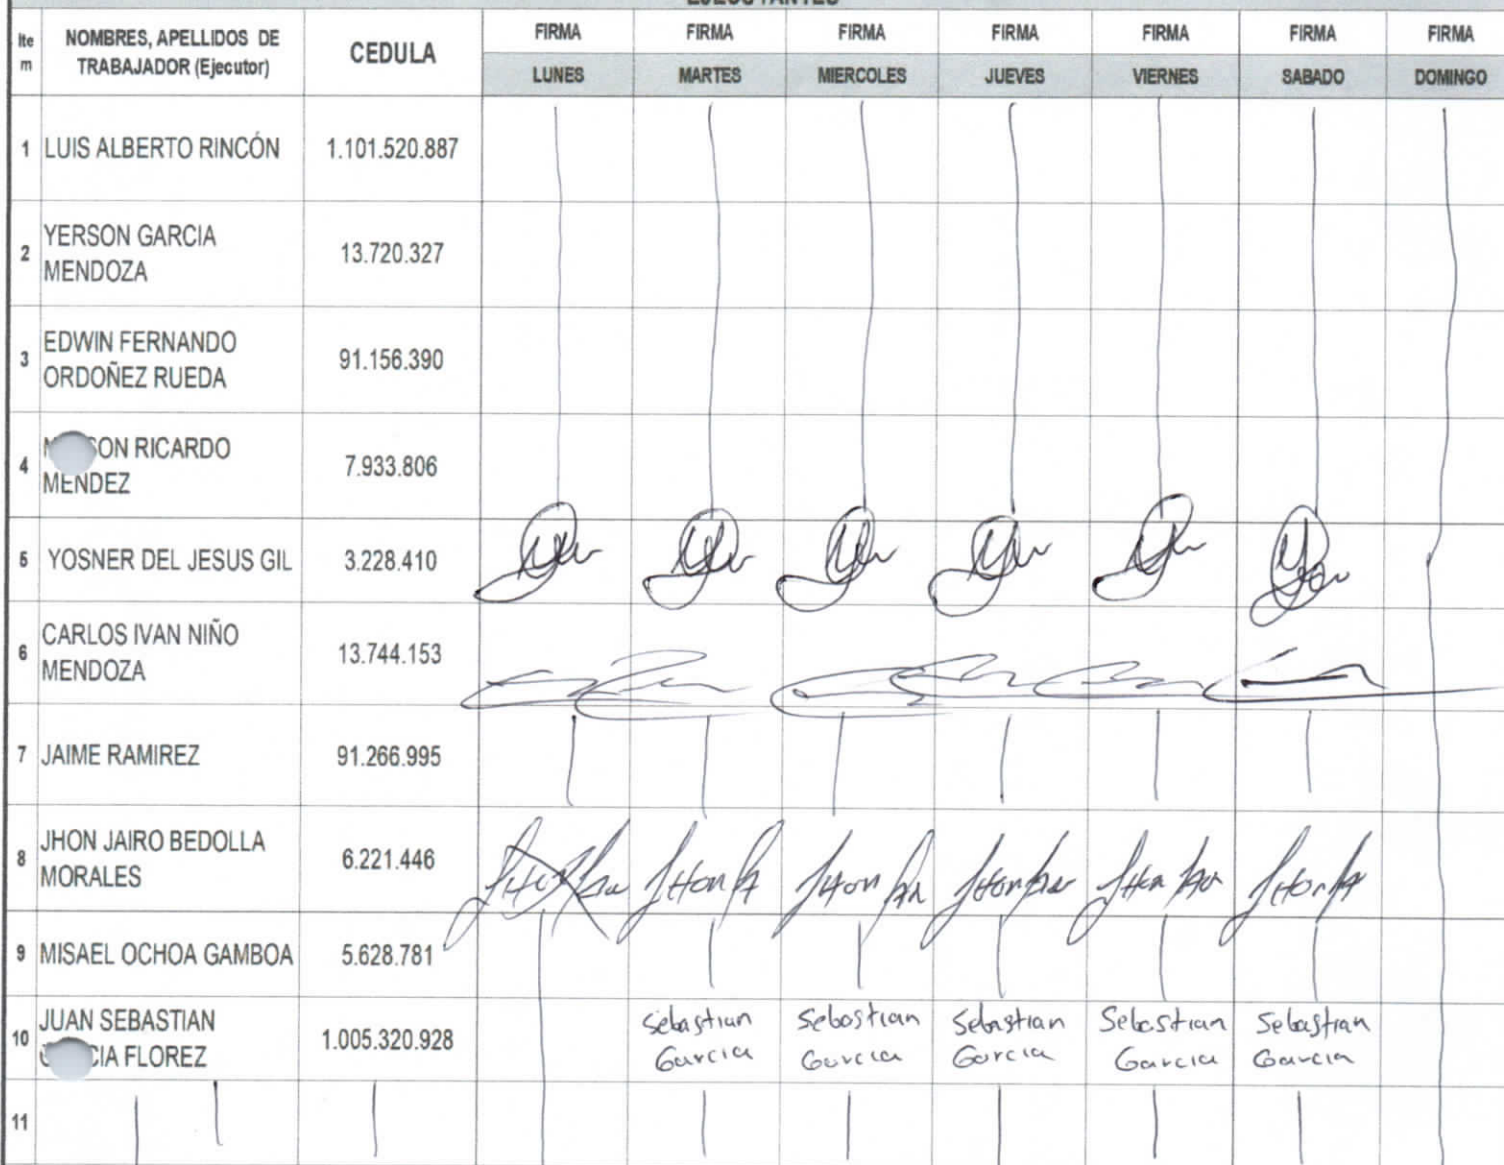 Ite
m
NOMBRES, APELLIDOS DE
TRABAJADOR (Ejecutor)
CEDULA
FIRMA FIRMA FIRMA FIRMA FIRMA FIRMA FIRMA
LUNES MARTES MIERCOLES JUEVES VIERNES SABADO DOMINGO
1 LUIS ALBERTO RINCÓN 1.101.520.887
2 YERSON GARCIA
MENDOZA 13.720.327
3 EDWIN FERNANDO
ORDOÑEZ RUEDA 91.156.390
4 RICARDO
MENDEZ 7.933.806
5 YOSNER DEL JESUS GIL 3.228.410
6 CARLOS IVAN NIÑO
MENDOZA 13.744.153
7 JAIME RAMIREZ 91.266.995
8 JHON JAIRO BEDOLLA
MORALES 6.221.446
9 MISAEL OCHOA GAMBOA 5.628.781
10 JUAN SEBASTIAN
FLOREZ 1.005.320.928
Sebastian Sebastian Sebastian Sebastian Sebastian
Garcia Garcia Garcia Garcia Garcia
11